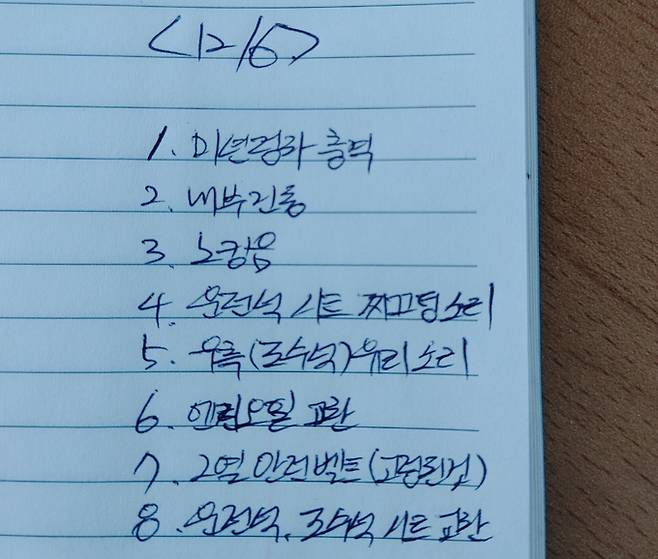 <12/6>
1. 미션검차 충격
2. 내부진동
3. 노킹음
4. 운전석 시트 찌끄덩소리
5. 우측(조수석)유리소리
6. 엔진오일 교환
7. 2열 안전벨트(고정된것)
8. 운전석, 조수석 시트 교환